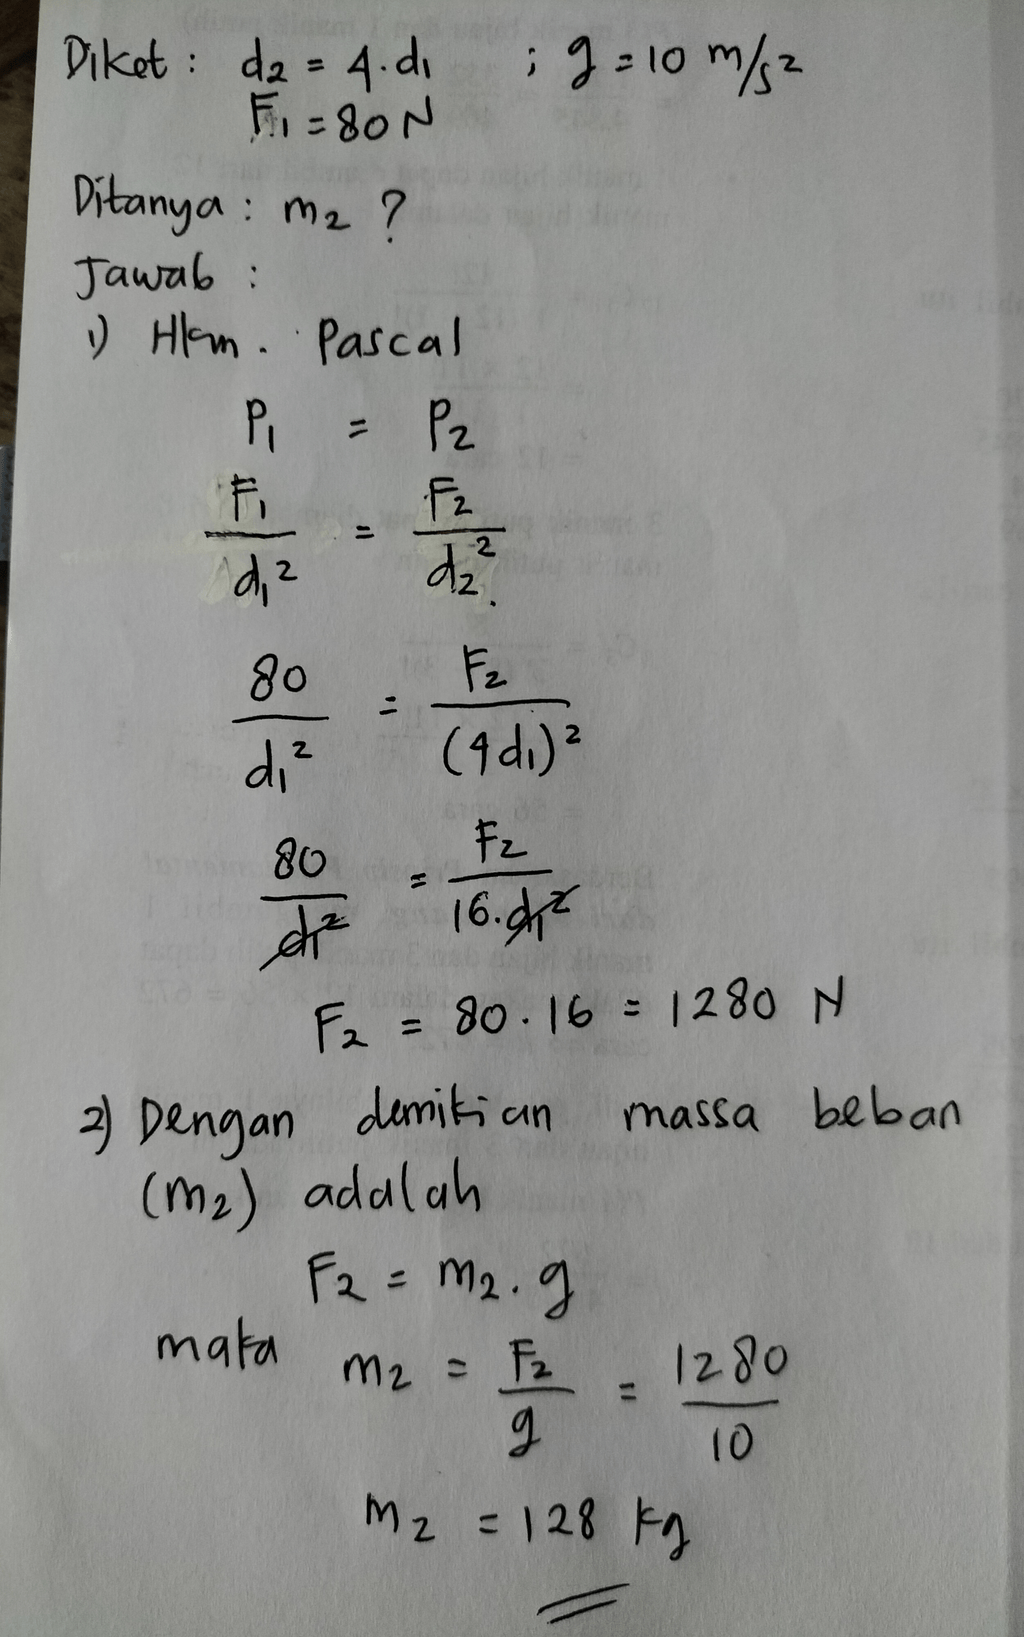 Diket : d2 = 4.d1 ; g = 10 m/s2
F1 = 80 N
Ditanya : m2 ?
Jawab :
1) Hkm. Pascal
P1 = P2
F1/d1² = F2/d2²
80/d1² = F2/(4d1)²
80/d1² = F2/16.d1²
F2 = 80.16 = 1280 N
2) Dengan demikian massa beban
(m2) adalah
F2 = m2.g
maka m2 = F2/g = 1280/10
m2 = 128 kg